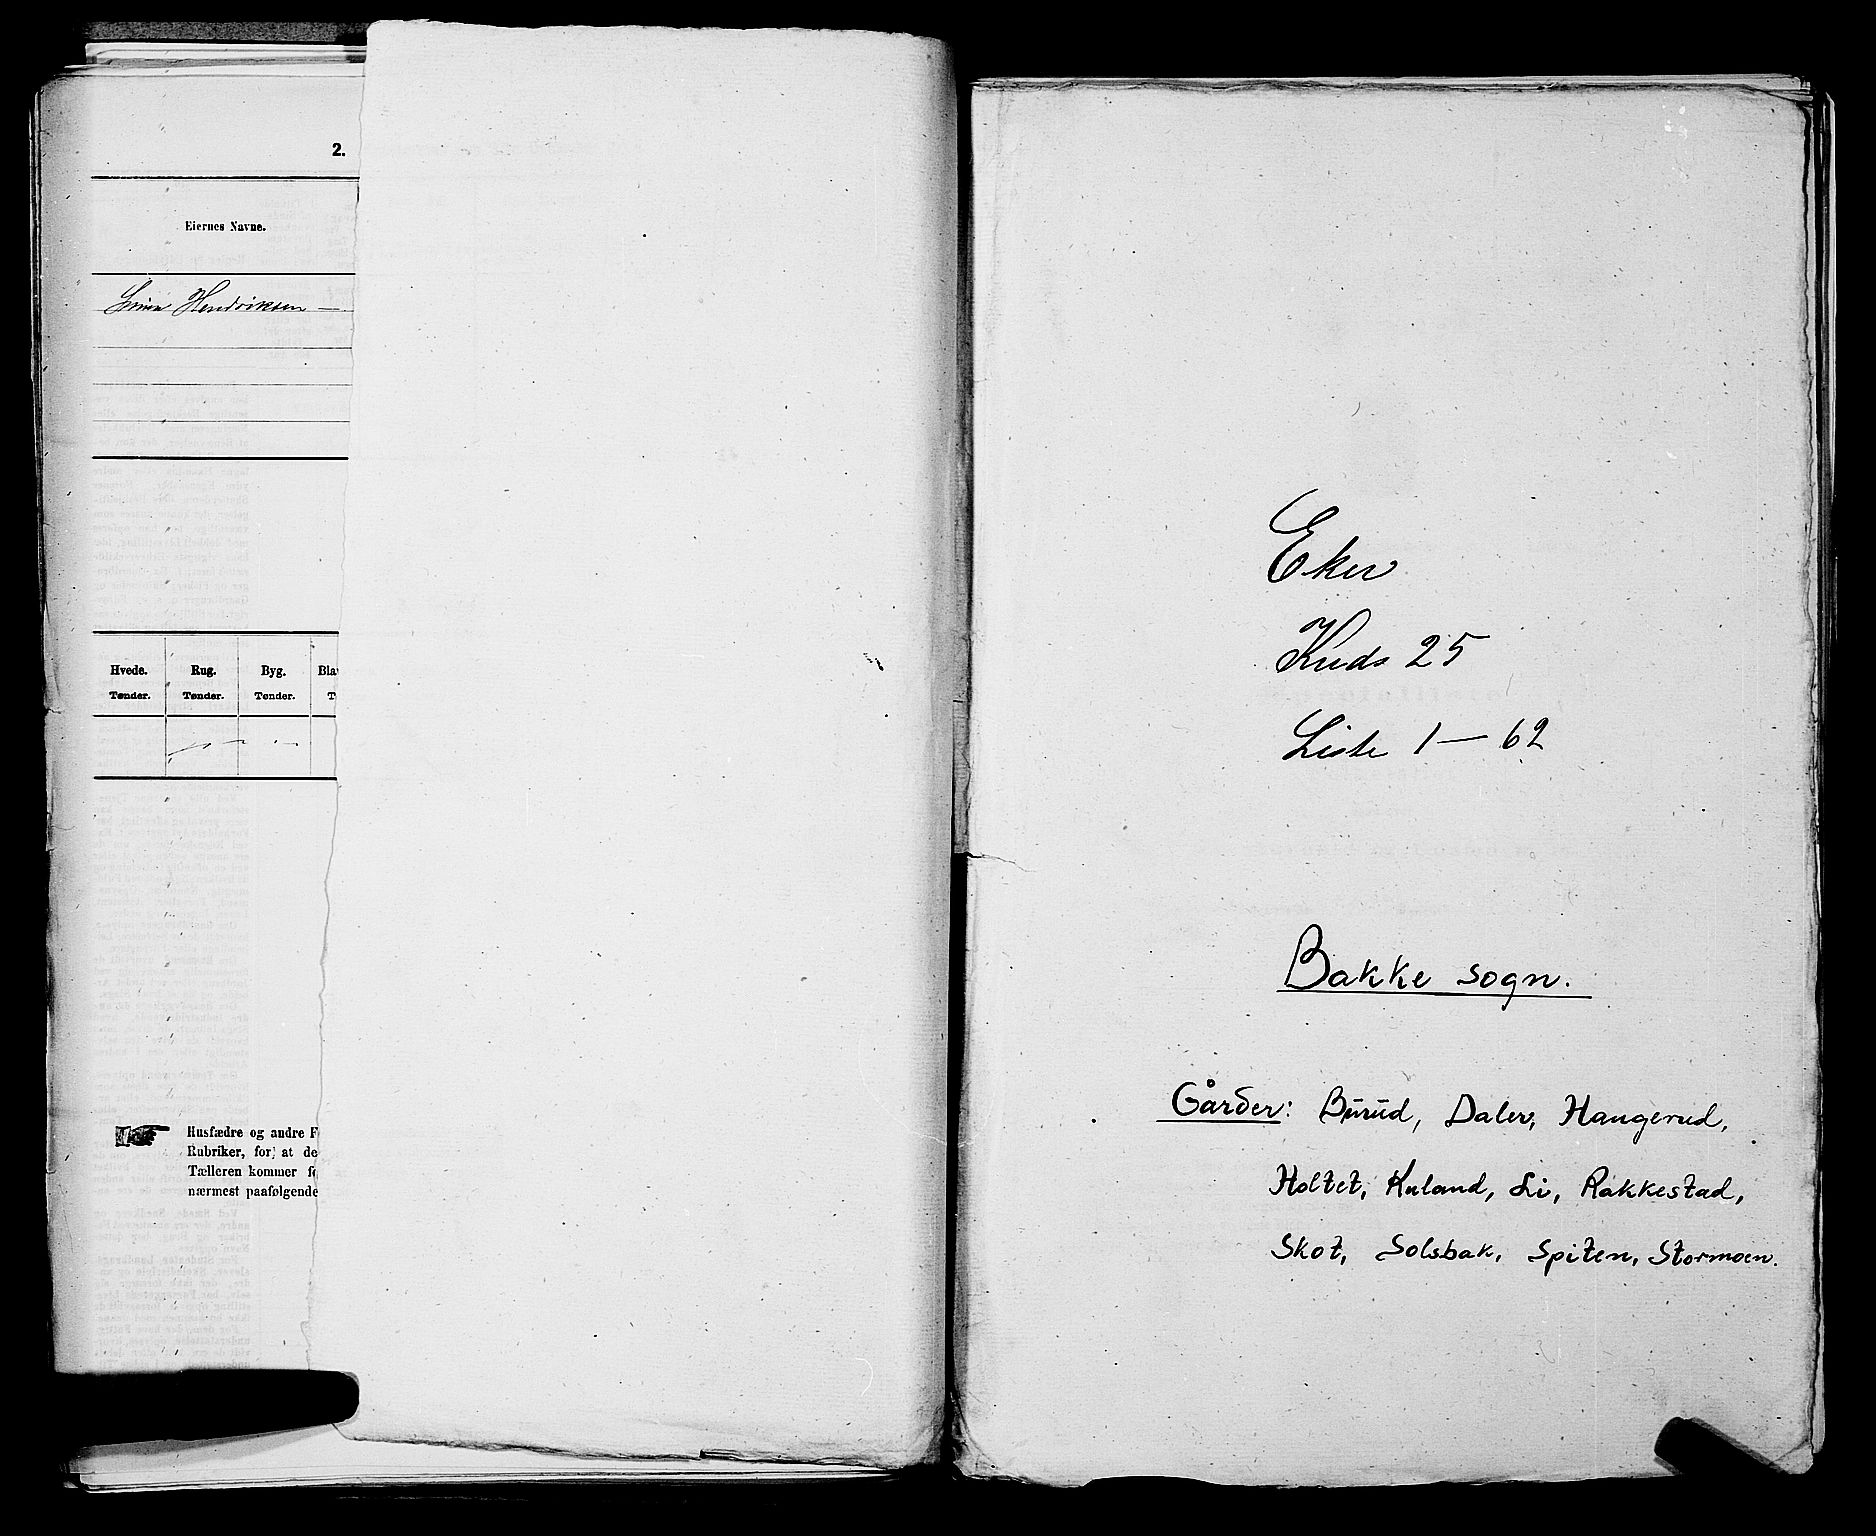 2.
Eiernes Navne.
Hendriksen —
Hvede. Rug. Byg. Bla
Tønder. Tønder. Tønder. T
Husfædre og andre F
Rubriker, for, at de
Tælleren kommer f
nærmest paafølgende
Eker
Kreds 25
Liste 1 — 62
Bakke sogn.
Gårder: Burud, Daler, Haugerud,
Holtet, Kuland, Li, Rakkestad,
Skot, Solsbak, Spiten, Stormoen.